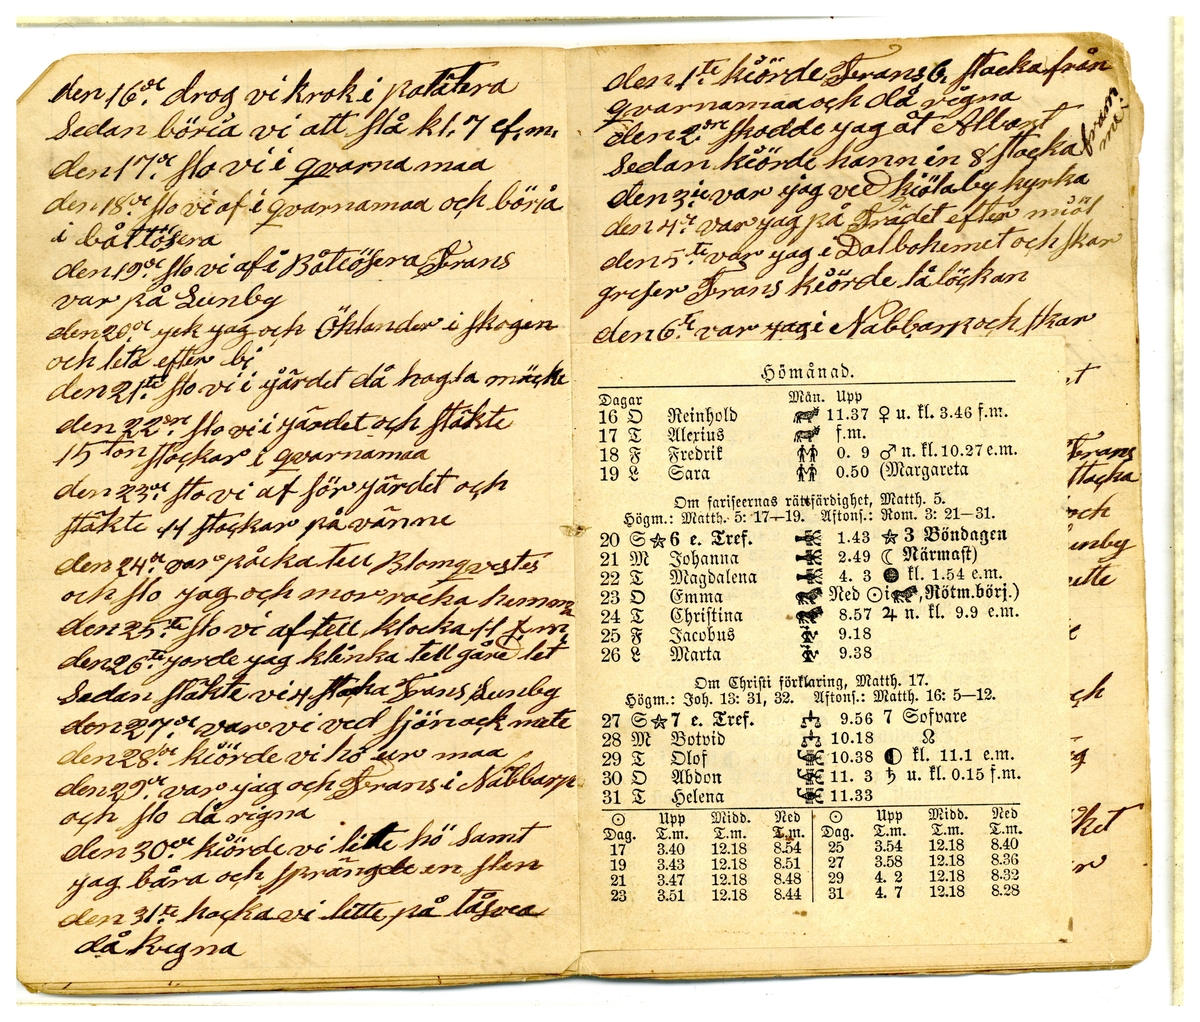 den 16de drog vi krok i patätera
Sedan börja vi att slå kl. 7 ef.m.
den 17de slo vi i qvarnamaa
den 18de slo vi af i qvarnamaa och börja
i båttösera
den 19de slo vi af i Båtiösera Frans
var på Lunby
den 20de gek jag och Öhlander i skogen
och leta efter bi
den 21te slo vi i gärdet då hagla möcke
den 22dre slo vi i gärdet och stäkte
15 ton stackar i qvarnamaa
den 23de slo vi af för gärdet och
stäkte 4 stackar på vänne
den 24de var påcka tell Blomqvistes
och slo jag och mor racka hemma
den 25te slo vi af tell klocka 11 f.m.
den 26te gorde jag klinka tell gåre let
Sedan stäkte vi 4 stacka Frans Lunby
den 27de var vi ved sjön ock mete
den 28de kiörde vi hö ur maa
den 29de var jag och Frans i Nabbarp
och slo då rigna
den 30de kiörde vi litte hö Samt
jag båra och sprängde en sten
den 31te hacka vi litte på låsvea
då kvigna
den 1te kiörde Frans 6 stacka från
qvarnamaa och då rigna
den 2dre skodde jag åt Albert
Sedan kiörde hann in 8 stacka fram
den 3ie var jag ved kiölaby kyrka
den 4de var jag på Trädet efter miöl
den 5te var jag i Dalbohemet och skar
grefer Frans kiörde lå löckan
den 6te var jag i Nabbarp och skar
Hömånad.
Dagar Mån. Upp
16 O Reinhold 11.37 ♀ u. kl. 3.46 f.m.
17 T Alexius f.m.
18 F Fredrik 0. 9 ♂ n. kl. 10.27 e.m.
19 L Sara 0.50 (Margareta
Om fariseernas rättfärdighet, Matth. 5.
Högm.: Matth. 5: 17—19. Aftons.: Rom. 3: 21—31.
20 S ☆ 6 e. Tref. 1.43 ☆ 3 Böndagen
21 M Johanna 2.49 ☾ Närmast)
22 T Magdalena 4. 3 kl. 1.54 e.m.
23 O Emma Ned ☉ i ♌, Rötm.börj.)
24 T Christina 8.57 ♃ n. kl. 9.9 e.m.
25 F Jacobus 9.18
26 L Marta 9.38
Om Christi förklaring, Matth. 17.
Högm.: Joh. 13: 31, 32. Aftons.: Matth. 16: 5—12.
27 S ☆ 7 e. Tref. 9.56 7 Sofvare
28 M Botvid 10.18 ☊
29 T Olof 10.38 ◐ kl. 11.1 e.m.
30 O Abdon 11. 3 ♄ u. kl. 0.15 f.m.
31 T Helena 11.33
☉ Upp Midd. Ned ☉ Upp Midd. Ned
Dag. T.m. T.m. T.m. Dag. T.m. T.m. T.m.
17 3.40 12.18 8.54 25 3.54 12.18 8.40
19 3.43 12.18 8.51 27 3.58 12.18 8.36
21 3.47 12.18 8.48 29 4. 2 12.18 8.32
23 3.51 12.18 8.44 31 4. 7 12.18 8.28
Frans
stacka
och